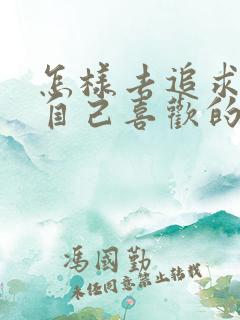 怎樣去追求
自己喜歡的
馮國勤
未經同意禁止轉載